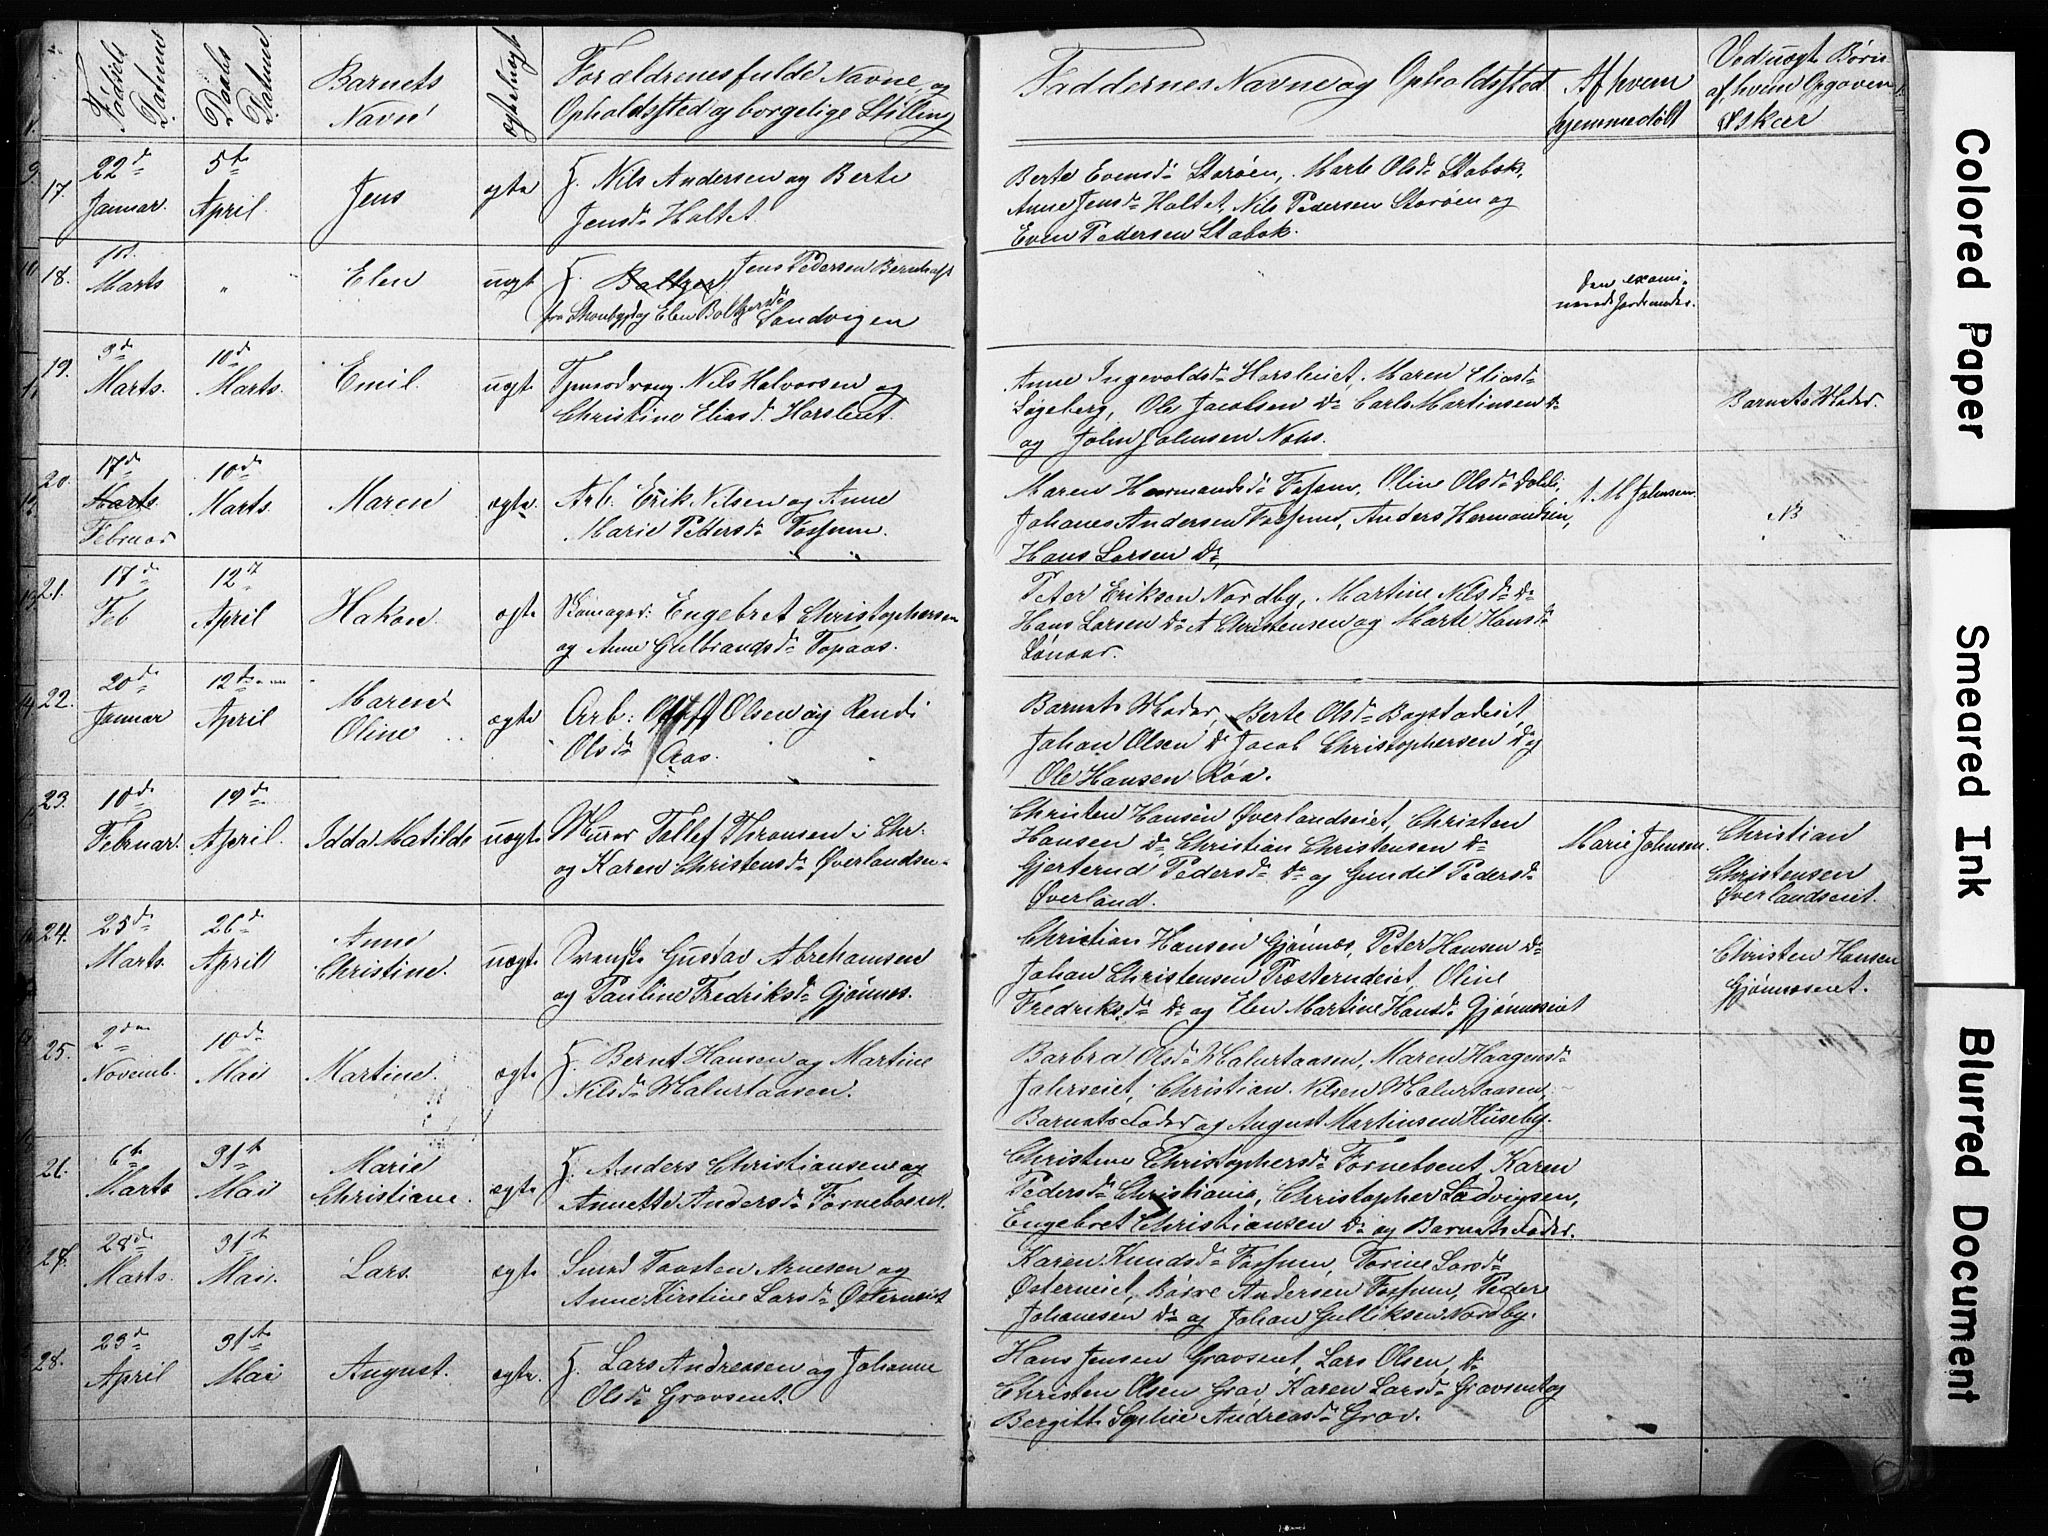 Fødsels Datum
Daabs Datum
Barnets Navn
ægte/uægt
Forældrenes fulde Navne, og
Opholdssted og borgelige Stilling
Faddernes Navne og Opholdssted
Af hvem
hjemmedøbt
Ved uægt. Børn
af hvem Opgaven
skeer
17.
22de
Januar.
5te
April.
Jens
ægte
H. Nils Andersen og Berte
Jensd. Holtet.
Berte Evensd. Storøen, Marte Olsd. Stabek,
Anne Jensd. Holtet, Nils Pedersen Storøen og
Even Pedersen Stabek.
18.
1st
Marts
"
Elen
uægt
H. Baltzer Jens Pedersen Berntsaft
fra og Elen Boltzersd.
Sandvigen
den exami-
nerede Jordemoder.
19.
3de
Marts.
10de
Marts.
Emil.
uægt
Tjenesdreng Nils Halvorsen og
Christine Eliasd. Horsleiet.
Anne Ingevoldsd. Horsleiet, Maren Eliasd.
Løgeberg, Ole Jacobsen do Carl Martinsen do
og John Johnsen Næs.
Barnets Moder.
20.
17de
Marts
Februar
10de
Marts.
Maren
ægte
Arb. Erik Nilsen og Anne
Marie Pedersd. Fossum.
Maren Hermandsd. Fossum, Oline Olsd. Dæli
Johanes Andersen Fossum, Anders Hermandsen,
Hans Larsen do,
A. M Johnsen.
NB
21.
17de
Feb
12te
April
Hakon.
ægte
Skomager: Engebret Christophersen
og Anne Gulbrandsd. Topaas.
Peter Eriksen Nordby, Martine Nilsd. do
Hans Larsen do A Christensen og Marte Hansd.
Lønaas.
22.
20de
Januar
12te
April
Maren
Oline
ægte
Arb: Oluff Olsen og Randi
Olsd. Aas.
Barnets Moder, Berte Olsd. Bagstadeiet,
Johan Olsen do Jacob Christophersen do og
Ole Hansen Røa.
23.
10de
Februar.
19de
April.
Idda Matilde
uægte
Murer Tollef Thronsen i Chr:
og Karen Christensd. Øverlandsei.
Christen Hansen Øverlandseiet, Christen
Hansen do, Christian Christensen do
Gjerterud Pedersd. do og Gundil Pedersd.
Øverland.
Marie Johnsen.
Christian
Christensen
Øverlandseiet.
24.
25de
Marts.
26de
April
Anne
Christine.
uægte
Svenske Gustav Abrehamsen
og Pauline Fredriksd. Gjønnes.
Christian Hansen Gjønnes, Peter Hansen do
Johan Christensen Præsterudeiet, Oline
Fredriksd. do og Elen Martine Hansd. Gjønneseiet
Christen Hansen
Gjønneseiet.
25.
2den
Novemb.
10de
Mai
Martine.
ægte
H. Bernt Hansen og Martine
Nilsd. Malurtaasen.
Barbra Olsd. Malurtaasen, Maren Haagensd.
Jahrseiet, Christian Nilsen Malurtaasen,
Barnets Fader og August Martinsen Huseby.
26.
6te
Marts
31te
Mai
Marie
Christiane.
ægte
H. Anders Christiansen og
Annette Andersd. Forneboeiet.
Christine Christophersd. Fornebeiet, Karen
Pedersd. Christiania, Christopher Ladvigsen,
Engebret Christiansen do og Barnets Fader.
27.
28de
Marts.
31te
Mai.
Lars.
ægte
Smed Torsten Arnesen og
Anne Kirstine Larsd. Østerneiet
Karen Knudsd. Fossum, Torine Larsd.
Østerneiet, Børre Andersen Fossum, Peder
Johanesen do og Johan Gulliksen Nordby.
28.
23de
April
31te
Mai
August.
ægte.
H. Lars Andreasen og Johanne
Olsd. Gravseiet.
Hans Jensen Gravseiet, Lars Olsen, do
Christen Olsen Grav, Karen Larsd. Gravseiet og
Bergitte Sophie Andreasd. Grav.
Colored Paper
Smeared Ink
Blurred Document